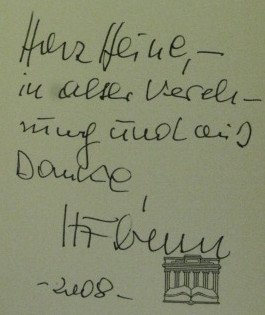 Herz Heine,–
in alter Vereh-
rung und aus
Danke,
–2008–